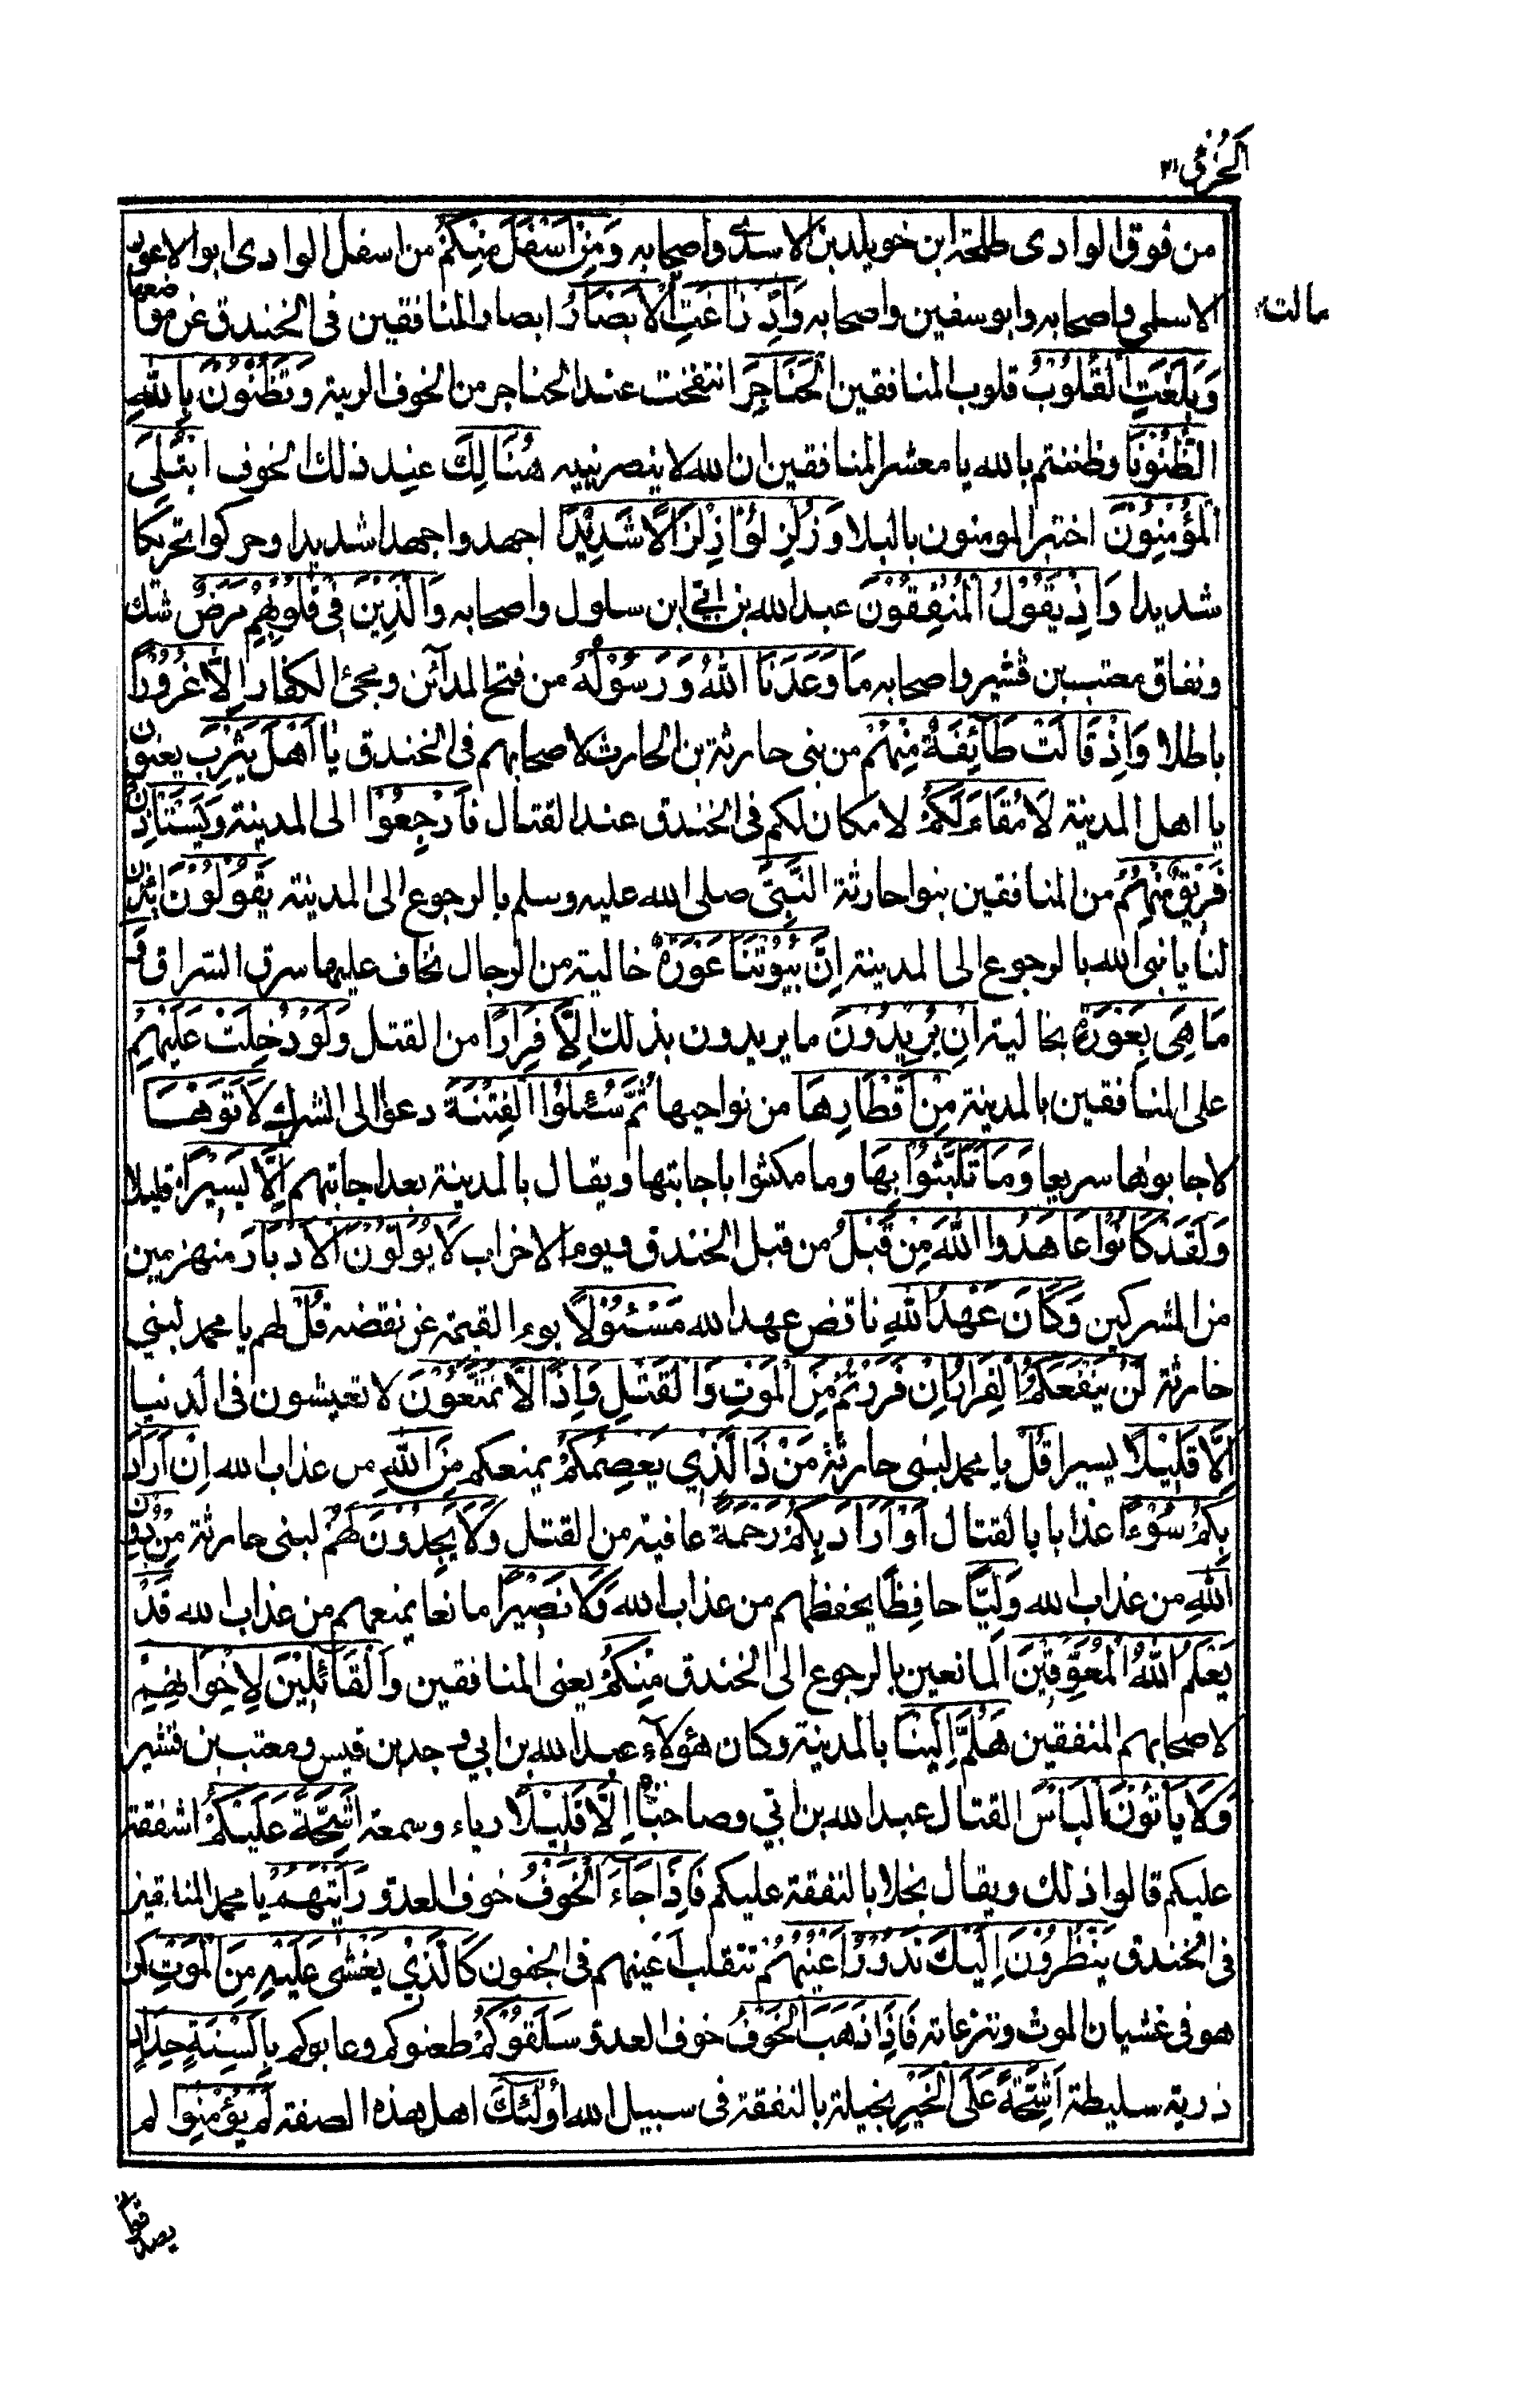 الجزؤ ٢١
من فوق الوادى طلحة ابن خويلد بن الاسدى واصحابه وَمِنْ اَسْفَلَ مِنْكُمْ من اسفل الوادى ابو الاعور
الاسلمى واصحابه وابو سفين واصحابه وَاِذْ زَاغَتِ الْاَبْصَارُ ابصار المنافقين فى الخندق عن موضعها
مالت
وَبَلَغَتِ الْقُلُوْبُ قلوب المنافقين الْحَنَاجِرَ انتفخت عند الحناجر من الخوف الرية وَتَظُنُّوْنَ بِاللّٰهِ
الظُّنُوْنَا وظننتم بالله يا معشر المنافقين ان الله لا ينصر نبيه هُنَالِكَ عند ذلك الخوف ابْتُلِىَ
الْمُؤْمِنُوْنَ اختبر المومنون بالبلا وَزُلْزِلُوْا زِلْزَالًا شَدِيْدًا اجهدوا جهدا شديدا وحركوا تحريكا
شديدا وَاِذْ يَقُوْلُ الْمُنٰفِقُوْنَ عبد الله بن ابي ابن سلول واصحابه وَالَّذِيْنَ فِىْ قُلُوْبِهِمْ مَرَضٌ شك
ونفاق معتب بن قشير واصحابه مَا وَعَدَنَا اللّٰهُ وَرَسُوْلُهُ من فتح المدآئن ومجئ الكفار اِلَّا غُرُوْرًا
باطلا وَاِذْ قَالَتْ طَائِفَةٌ مِّنْهُمْ من بنى حارثة بن الحارث لاصحابهم فى الخندق يَا اَهْلَ يَثْرِبَ يعنون
يا اهل المدينة لَا مُقَامَ لَكُمْ لا مكان لكم فى الخندق عند القتال فَارْجِعُوْا الى المدينة وَيَسْتَاْذِنُ
فَرِيْقٌ مِّنْهُمُ من المنافقين بنوا حارثة النَّبِىَّ صلى الله عليه وسلم بالرجوع الى المدينة يَقُوْلُوْنَ ائذن
لنا يا نبى الله بالرجوع الى المدينة اِنَّ بُيُوْتَنَا عَوْرَةٌ خالية من الرجال نخاف عليها سرق السراق وَ
مَا هِىَ بِعَوْرَةٍ بخالية اِنْ يُرِيْدُوْنَ ما يريدون بذلك اِلَّا فِرَارًا من القتل وَلَوْ دُخِلَتْ عَلَيْهِمْ
على المنافقين بالمدينة مِنْ اَقْطَارِهَا من نواحيها ثُمَّ سُئِلُوا الْفِتْنَةَ دعوا الى الشرك لَاٰتَوْهَا
لاجابوها سريعا وَمَا تَلَبَّثُوْا بِهَا وما مكثوا باجابتها ويقال بالمدينة بعد اجابتهم اِلَّا يَسِيْرًا قليلا
وَلَقَدْ كَانُوْا عَاهَدُوا اللّٰهَ مِنْ قَبْلُ من قبل الخندق ويوم الاحزاب لَا يُوَلُّوْنَ الْاَدْبَارَ منهزمين
من المشركين وَكَانَ عَهْدُ اللّٰهِ ناقض عهد الله مَسْئُوْلًا يوم القيمة عن نقضه قُلْ لهم يا محمد لبنى
حارثة لَنْ يَنْفَعَكُمُ الْفِرَارُ اِنْ فَرَرْتُمْ مِّنَ الْمَوْتِ وَالْقَتْلِ وَاِذًا لَّا تُمَتَّعُوْنَ لا تعيشون فى الدنيا
اِلَّا قَلِيْلًا يسيرا قُلْ يا محمد لبنى حارثة مَنْ ذَا الَّذِىْ يَعْصِمُكُمْ يمنعكم مِنَ اللّٰهِ من عذاب الله اِنْ اَرَادَ
بِكُمْ سُوْءًا عذابا بالقتال اَوْ اَرَادَ بِكُمْ رَحْمَةً عافية من القتل وَلَا يَجِدُوْنَ لَهُمْ لبنى حارثة مِنْ دُوْنِ
اللّٰهِ من عذاب الله وَلِيًّا حافظا يحفظهم من عذاب الله وَلَا نَصِيْرًا مانعا يمنعهم من عذاب الله قَدْ
يَعْلَمُ اللّٰهُ الْمُعَوِّقِيْنَ المانعين بالرجوع الى الخندق مِنْكُمْ يعنى المنافقين وَالْقَائِلِيْنَ لِاِخْوَانِهِمْ
لاصحابهم المنفقين هَلُمَّ اِلَيْنَا بالمدينة وكان هؤلآء عبد الله بن ابي وجد بن قيس ومعتب بن قشير
وَلَا يَاْتُوْنَ الْبَاْسَ القتال عبد الله بن ابي وصاحباه اِلَّا قَلِيْلًا رياء وسمعة اَشِحَّةً عَلَيْكُمْ اشفقة
عليكم قالوا ذلك ويقال بخلا بالنفقة عليكم فَاِذَا جَاءَ الْخَوْفُ خوف العدو رَاَيْتَهُمْ يا محمد المنافقين
فى الخندق يَنْظُرُوْنَ اِلَيْكَ تَدُوْرُ اَعْيُنُهُمْ تتقلب اعينهم فى الجفون كَالَّذِىْ يُغْشٰى عَلَيْهِ مِنَ الْمَوْتِ كمن
هو فى غشيان الموت ونزعاته فَاِذَا ذَهَبَ الْخَوْفُ خوف العدو سَلَقُوْكُمْ طعنوكم وعابوكم بِاَلْسِنَةٍ حِدَادٍ
ذربة سليطة اَشِحَّةً عَلَى الْخَيْرِ بخيلة بالنفقة فى سبيل الله اُولٰئِكَ اهل هذه الصفة لَمْ يُؤْمِنُوْا لم
يصدقوا